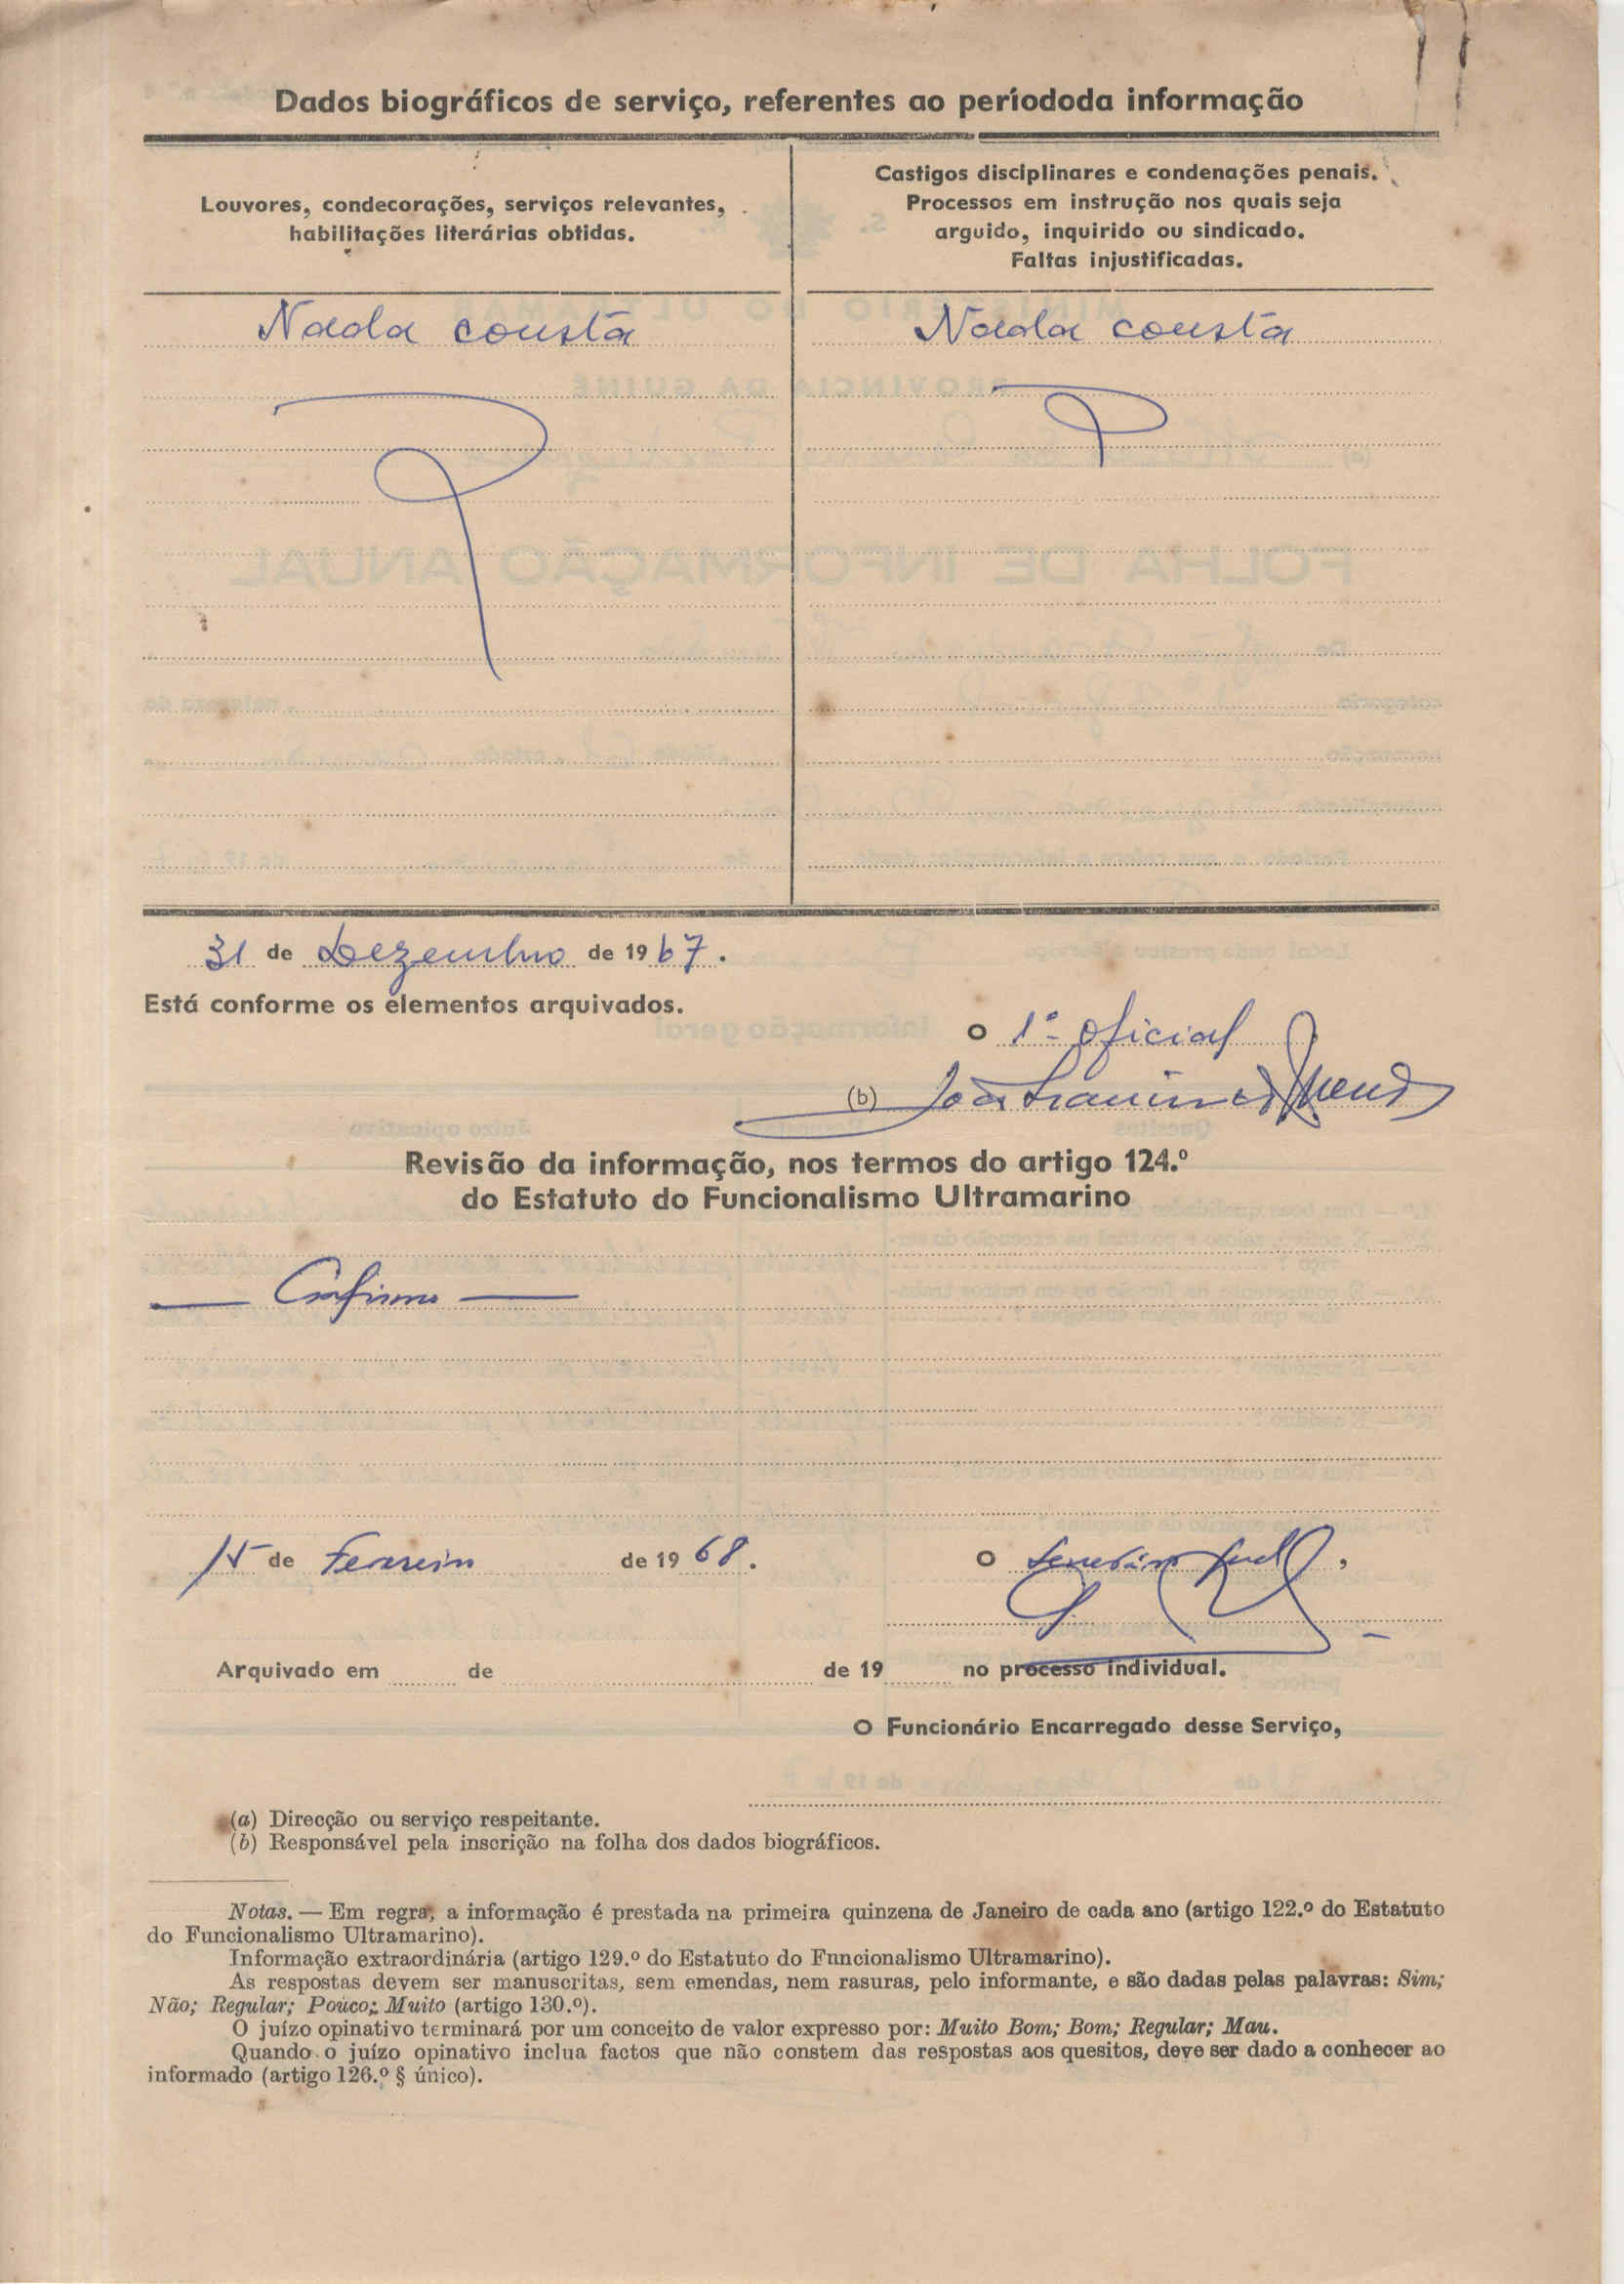 Dados biográficos de serviço, referentes ao períododa informação
Louvores, condecorações, serviços relevantes,
habilitações literárias obtidas.
Castigos disciplinares e condenações penais.
Processos em instrução nos quais seja
arguido, inquirido ou sindicado.
Faltas injustificadas.
Nada consta
Nada consta
31 de Dezembro de 1967.
Está conforme os elementos arquivados.
O 1º oficial
(b) João
Revisão da informação, nos termos do artigo 124.º
do Estatuto do Funcionalismo Ultramarino
— Confirmo —
15 de Fevereiro de 1968.
O Secretário Geral,
Arquivado em de de 19 no processo individual.
O Funcionário Encarregado desse Serviço,
(a) Direcção ou serviço respeitante.
(b) Responsável pela inscrição na folha dos dados biográficos.
Notas. — Em regra, a informação é prestada na primeira quinzena de Janeiro de cada ano (artigo 122.º do Estatuto
do Funcionalismo Ultramarino).
Informação extraordinária (artigo 129.º do Estatuto do Funcionalismo Ultramarino).
As respostas devem ser manuscritas, sem emendas, nem rasuras, pelo informante, e são dadas pelas palavras: Sim;
Não; Regular; Pouco; Muito (artigo 130.º).
O juízo opinativo terminará por um conceito de valor expresso por: Muito Bom; Bom; Regular; Mau.
Quando o juízo opinativo inclua factos que não constem das respostas aos quesitos, deve ser dado a conhecer ao
informado (artigo 126.º § único).